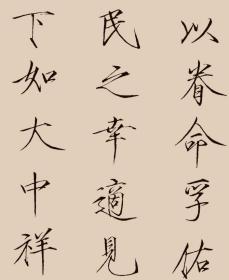 以眷命孚佑
民之幸適見
下如大中祥